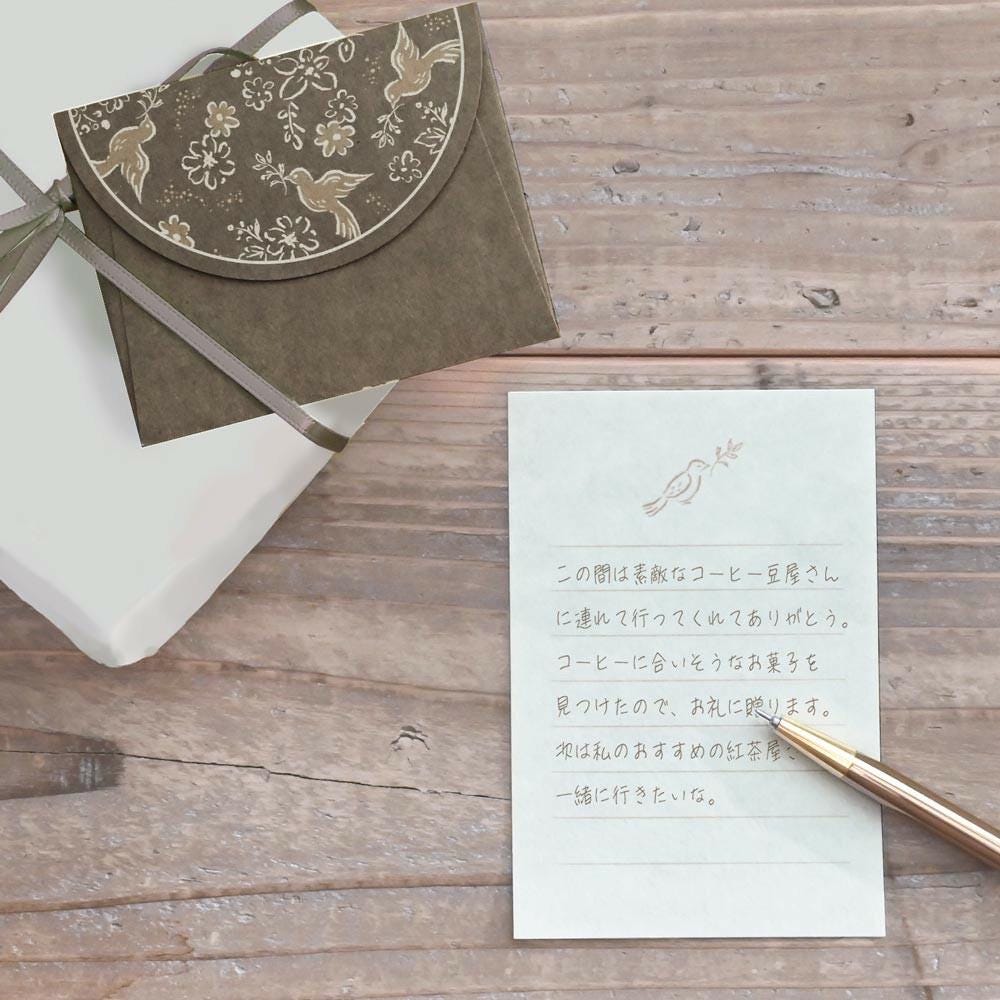 この間は素敵なコーヒー豆屋さん
に連れて行ってくれてありがとう。
コーヒーに合いそうなお菓子を
見つけたので、お礼に贈ります。
次は私のおすすめの紅茶屋
一緒に行きたいな。